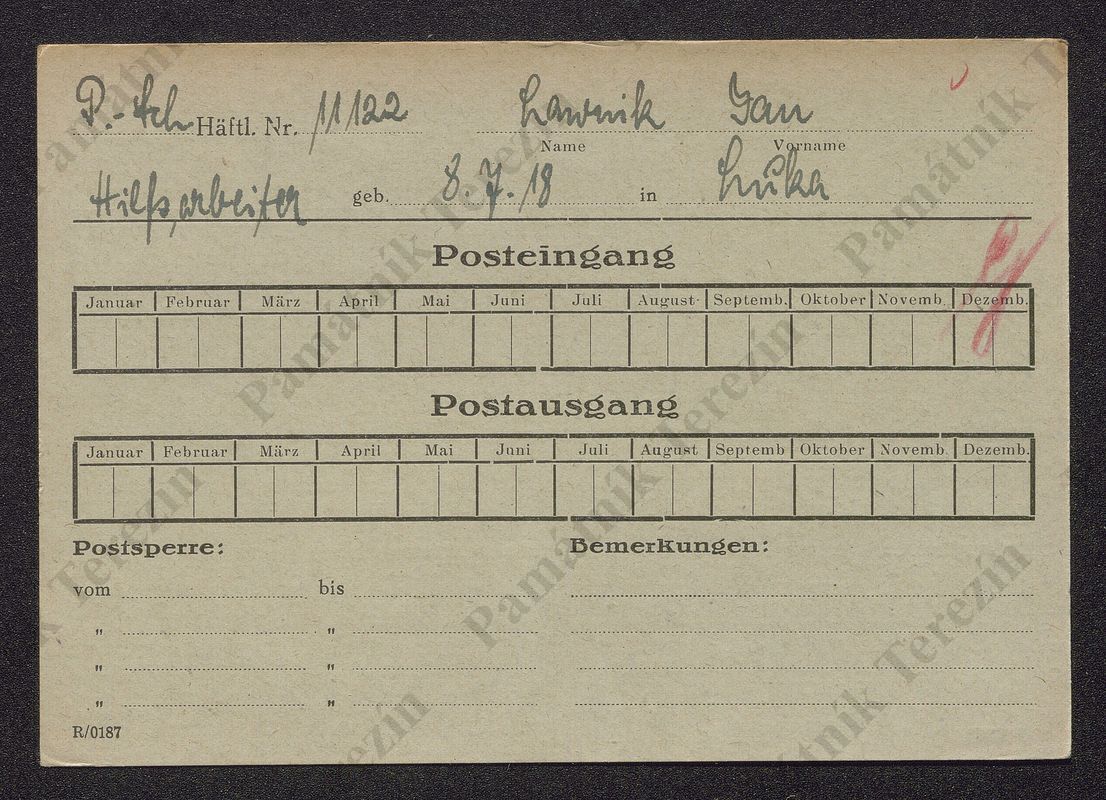 P.-Sch Häftl. Nr. 11122 Lawnik Jan
Name Vorname
Hilfsarbeiter geb. 8.7.18 in Luka
Posteingang
Januar Februar März April Mai Juni Juli August Septemb. Oktober Novemb. Dezemb.
Postausgang
Januar Februar März April Mai Juni Juli August Septemb Oktober Novemb. Dezemb.
Postsperre: Bemerkungen:
vom bis
" "
" "
" "
R/0187
Památník Terezín